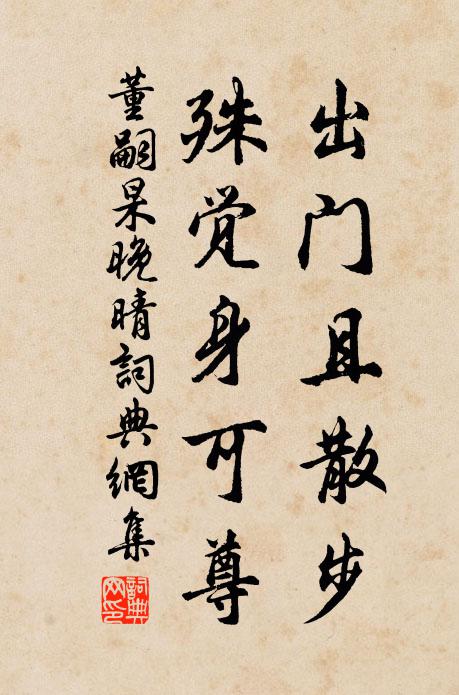 出门且散步
殊觉身可尊
董嗣杲晚晴詞典網集
詞典网印